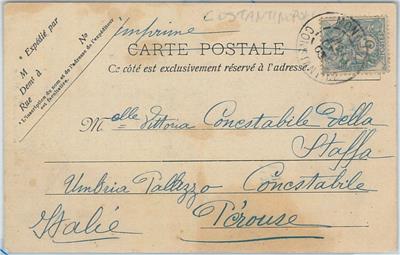 COSTANTINOPOLI
Imprimé
CARTE POSTALE
Ce côté est exclusivement réservé à l'adresse.
* Expédié par
M N°
Demt à
Rue
* L'inscription du nom et de l'adresse de l'expéditeur
est facultative.
Melle Vittoria Conestabile Della
Staffa
Umbria Palazzo Conestabile
Italie Pérouse